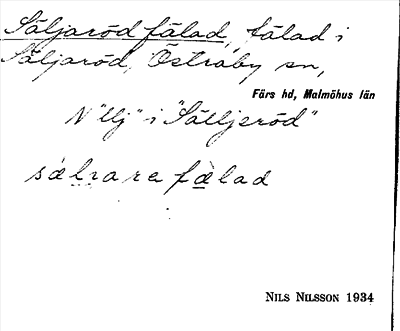 Säljaröd fälad, fälad i
Säljaröd, Östraby sn,
Färs hd, Malmöhus län
N "llj" i "Sälljeröd"
sælrara fælad
NILS NILSSON 1934